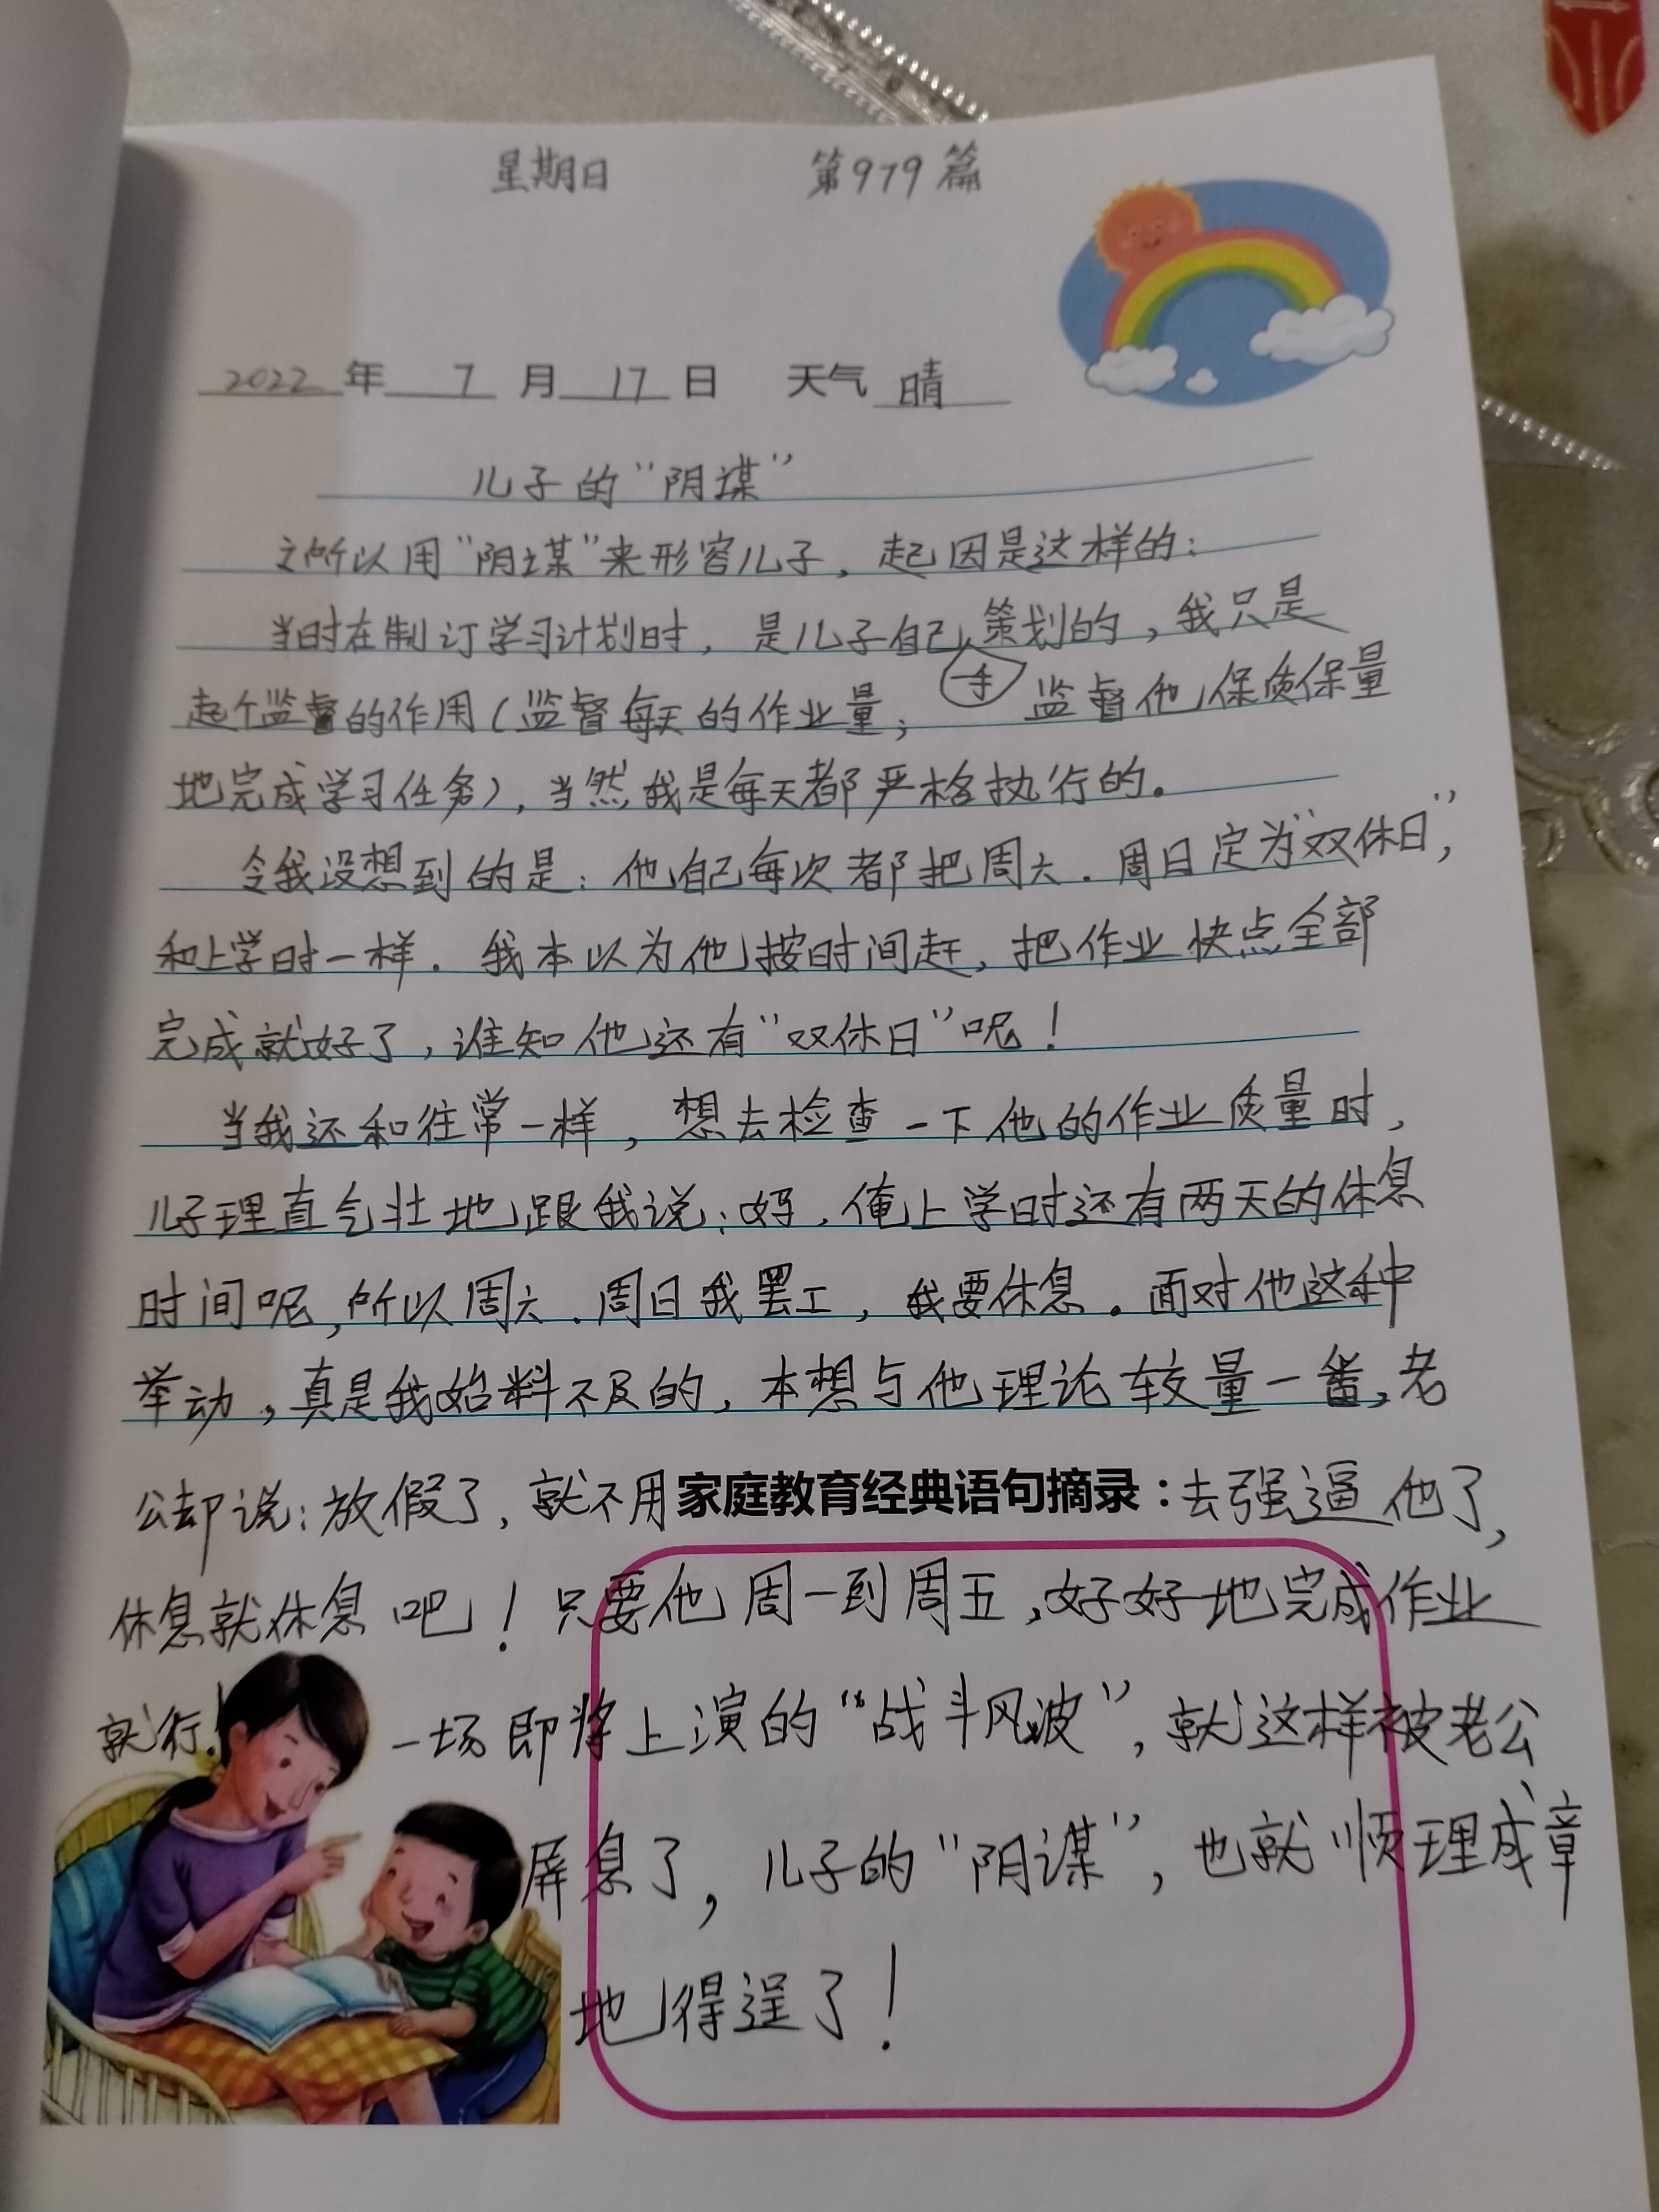 星期日 第979篇
2022年 7月 17日 天气 晴
儿子的“阴谋”
之所以用“阴谋”来形容儿子，起因是这样的：
当时在制订学习计划时，是儿子自己一手策划的，我只是
起个监督的作用（监督每天的作业量；监督他保质保量
地完成学习任务），当然我是每天都严格执行的。
令我没想到的是：他自己每次都把周六．周日定为“双休日”，
和上学时一样．我本以为他按时间赶，把作业快点全部
完成就好了，谁知他还有“双休日”呢！
当我还和往常一样，想去检查一下他的作业质量时，
儿子理直气壮地跟我说：妈．俺上学时还有两天的休息
时间呢，所以周六．周日我罢工，我要休息．面对他这种
举动，真是我始料不及的，本想与他理论较量一番，老
公却说：放假了，就不用 家庭教育经典语句摘录：去强逼他了，
休息就休息吧！只要他周一到周五，好好地完成作业
就行！一场即将上演的“战斗风波”，就这样被老公
屏息了，儿子的“阴谋”，也就顺理成章
地得逞了！